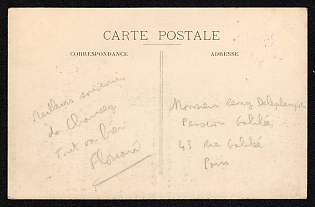 CARTE POSTALE
CORRESPONDANCE
ADRESSE
Meilleurs souvenirs
de
Tout va bien
Monsieur
Pension Galilée
43 Rue Galilée
Paris